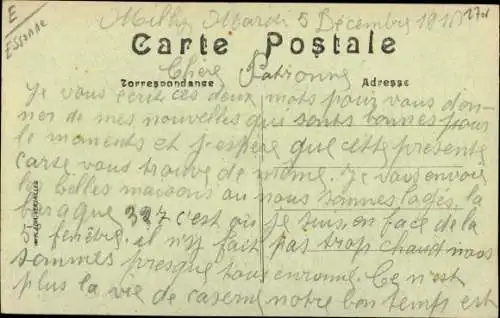 E
Essonne
Milly Mardi 5 Décembre 1916
Carte Postale
Chère Patronne
Correspondance
Adresse
Je vous écrit ces deux mots pour vous don-
ner de mes nouvelles qui sonts bonnes pour
le moments et j'espère que cette présente
carte vous trouve de même. Je vous envoie
les belles maisons ou nous sommes logés, la
baraque 327 c'est ou je suis, en face de la
5 fenêtre, il n'y fait pas trop chaud nous
sommes presque tous enrumé. Ce n'est
plus la vie de caserne notre bon temps est